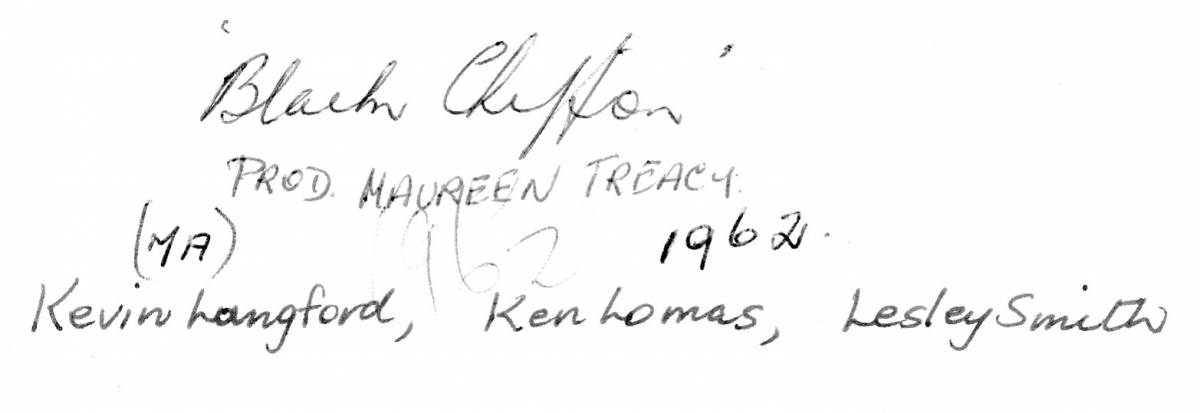 'Black Chiffon'
PROD. MAUREEN TREACY.
(MA) 1962.
1962
Kevin Langford, Ken Lomas, Lesley Smith